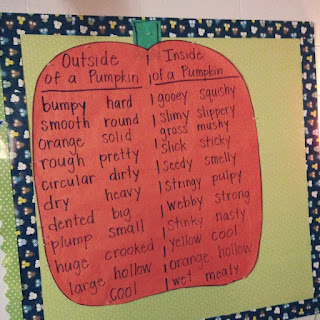 Outside
of a Pumpkin
bumpy hard
smooth round
orange solid
rough pretty
circular dirty
dry heavy
dented big
plump small
huge crooked
large hollow
cool
Inside
of a Pumpkin
gooey squishy
slimy slippery
gross mushy
slick sticky
seedy smelly
stringy pulpy
webby strong
stinky nasty
yellow cool
orange hollow
wet mealy